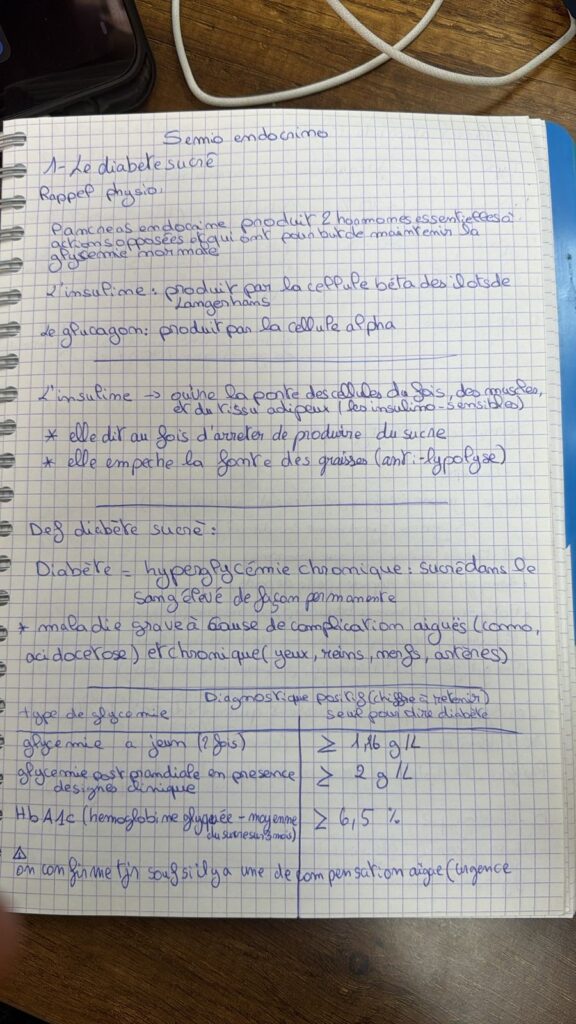 Semio endocrino
1- Le diabète sucré
Rappel physio:
Pancreas endocrine produit 2 hormones essentielles à
actions opposées et qui ont pour but de maintenir la
glycemie normale
L'insuline : produit par la cellule béta des ilots de
Langerhans
Le glucagon: produit par la cellule alpha
L'insuline → ouvre la porte des cellules du fois, des muscles,
et du tissu adipeux (les insulino-sensibles)
* elle dit au fois d'arreter de produire du sucre
* elle empeche la fonte des graisses (anti-lypolyse)
Def diabète sucré :
Diabète = hyperglycémie chronique : sucre dans le
sang élevé de façon permanente
* maladie grave à cause de complication aiguës (coma,
acidocetose) et chronique (yeux, reins, nerfs, artères)
Diagnostique positif (chiffre à retenir)
type de glycemie
seuil pour dire diabète
glycemie a jeun (2 fois)
≥ 1,26 g/L
glycemie post prandiale en presence
de signes clinique
≥ 2 g/L
HbA1c (hemoglobine glyquée - moyenne
du sucre sur 3 mois)
≥ 6,5 %
⚠ on confirme tjr sauf s'il y a une decompensation aigue (urgence